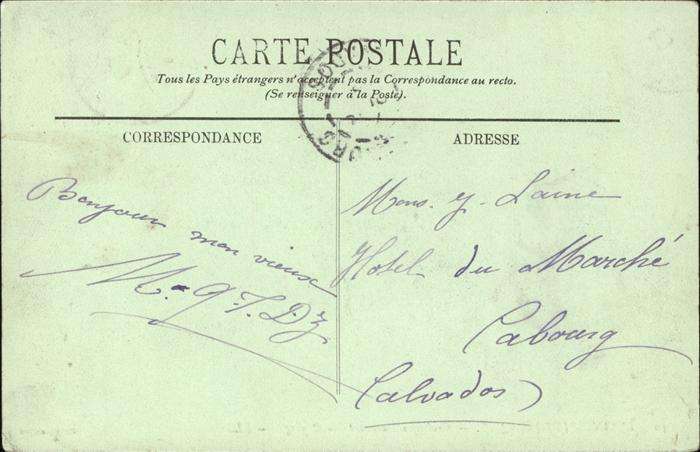 CARTE POSTALE
Tous les Pays étrangers n'acceptent pas la Correspondance au recto.
(Se renseigner à la Poste).
CORRESPONDANCE
Bonjour mon vieux
ADRESSE
Mons. J. Laine
Hotel du Marché
Cabourg
(Calvados)